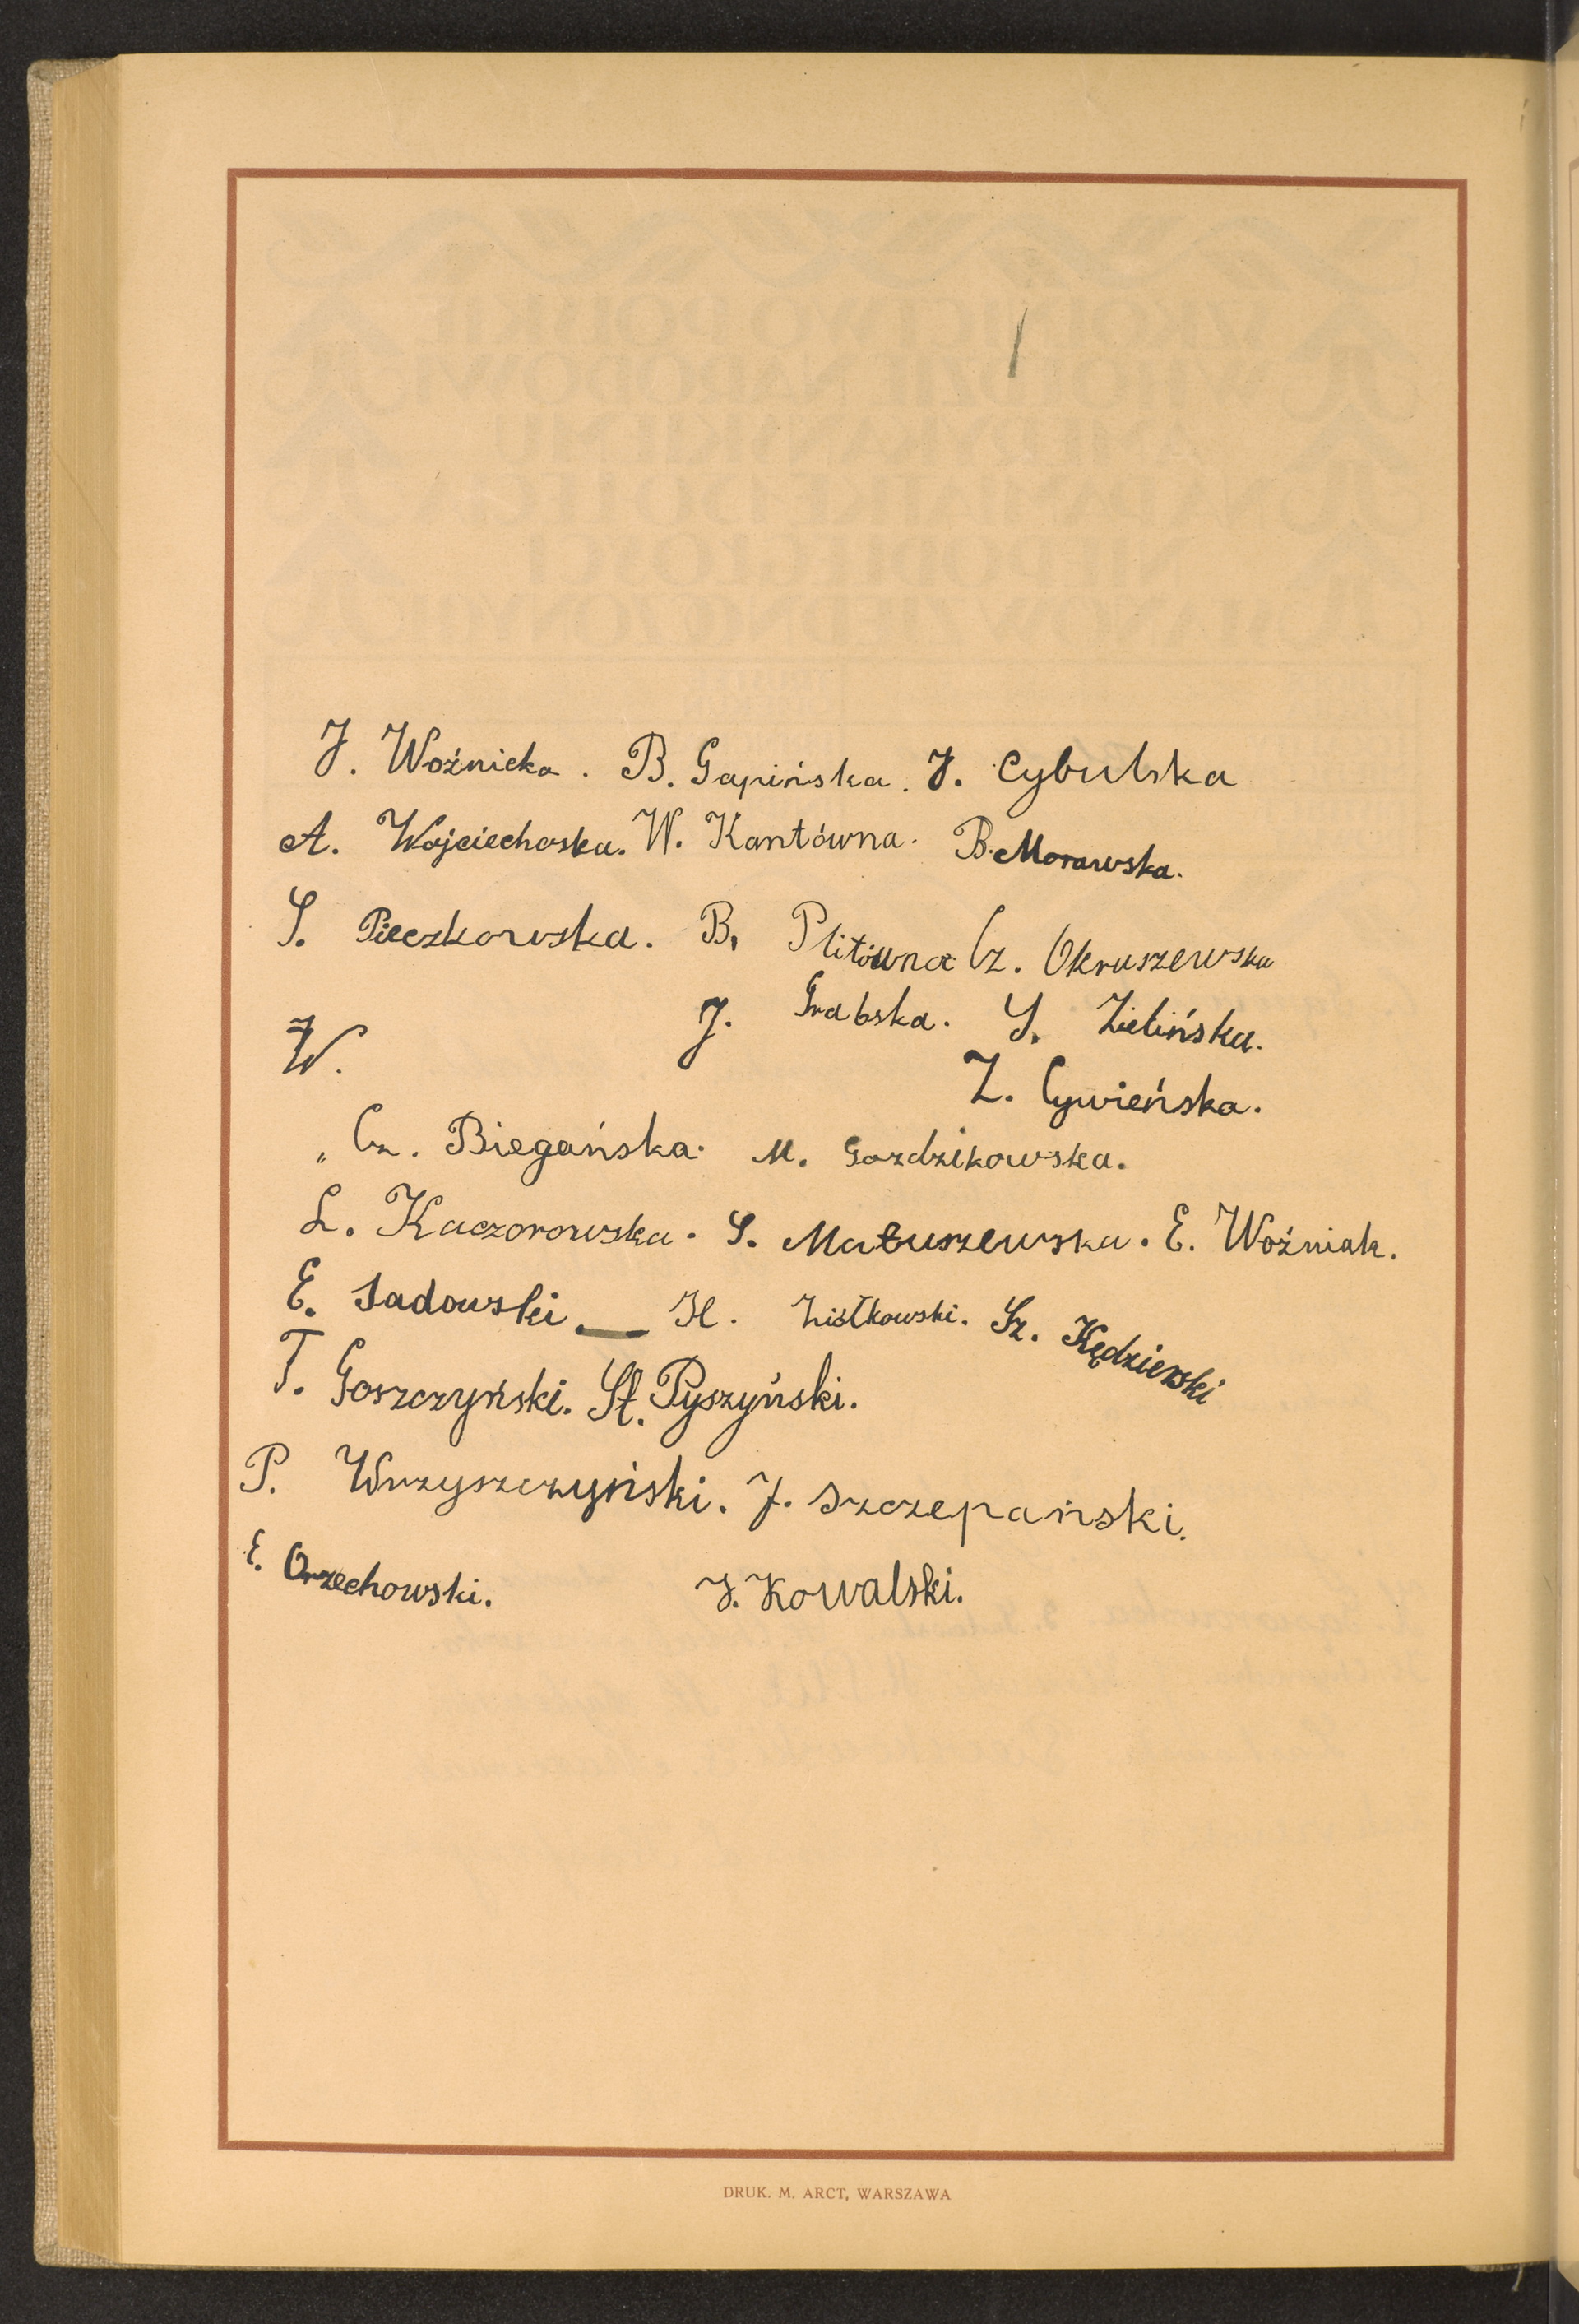 J. Woźnicka. B. Gapińska. J. Cybulska
A. Wojciechoska. W. Kantówna. B. Morawska.
S. Pieczkowska. B. Plitówna Cz. Okruszewska
W. J. Grabska. S. Zielińska.
Z. Cywieńska.
„ Cz. Biegańska. M. Gozdzikowska.
L. Kaczorowska. S. Matuszewska. E. Woźniak.
E. Sadowski. — H. Ziółkowski. Sz. Kędzierski
T. Goszczyński. St. Pyszyński.
P. Wrzyszczyński. J. Szczepański.
E. Orzechowski. J. Kowalski.
DRUK. M. ARCT, WARSZAWA